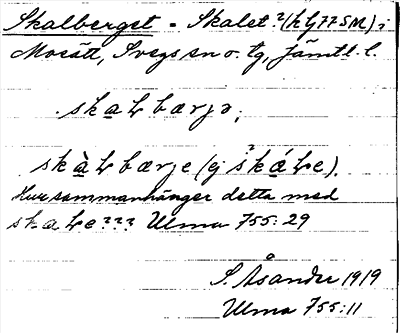 Skalberget = Skalet? (h Lj 77 SM) i
Mosätt, Svegs sn o. tg, Jämtl. l.
skaɫbærjə;
skàɫbærje (ej skáɫe).
Hur sammanhänger detta med
skaɫe??? Ulma 755:29
S. Åsander 1919
Ulma 755:11